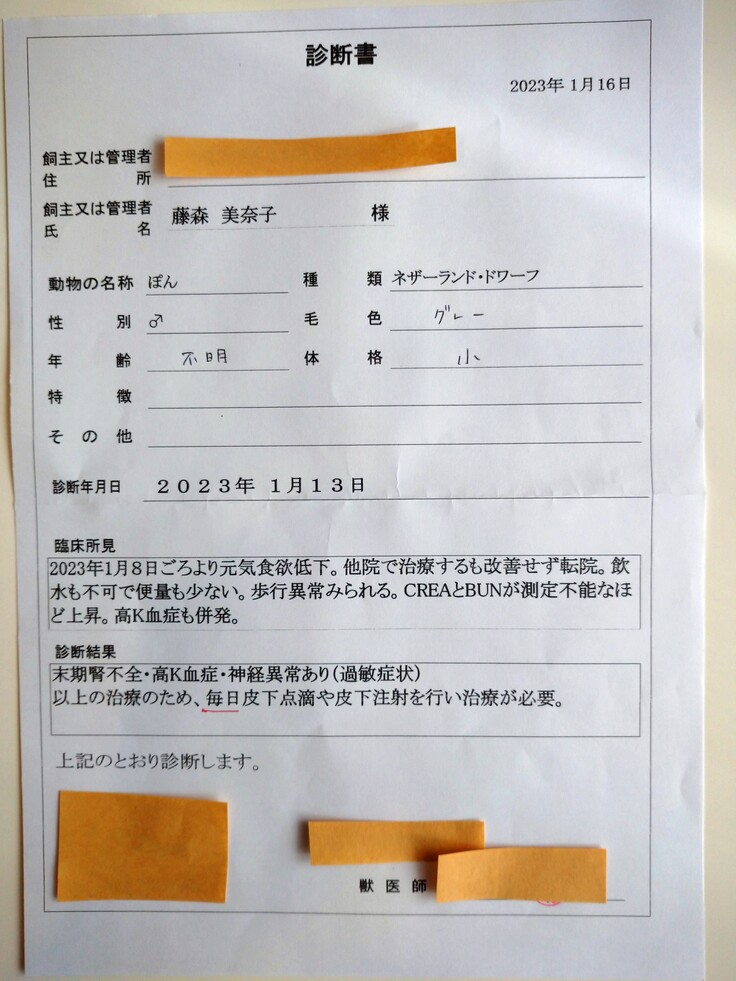 診断書
2023年 1月16日
飼主又は管理者
住 所
飼主又は管理者
氏 名 藤森 美奈子 様
動物の名称 ぽん 種 類 ネザーランド・ドワーフ
性 別 ♂ 毛 色 グレー
年 齢 不明 体 格 小
特 徴
そ の 他
診断年月日 2023年 1月13日
臨床所見
2023年1月8日ごろより元気食欲低下。他院で治療するも改善せず転院。飲
水も不可で便量も少ない。歩行異常みられる。CREAとBUNが測定不能なほ
ど上昇。高K血症も併発。
診断結果
末期腎不全・高K血症・神経異常あり(過敏症状)
以上の治療のため、毎日皮下点滴や皮下注射を行い治療が必要。
上記のとおり診断します。
獣 医 師